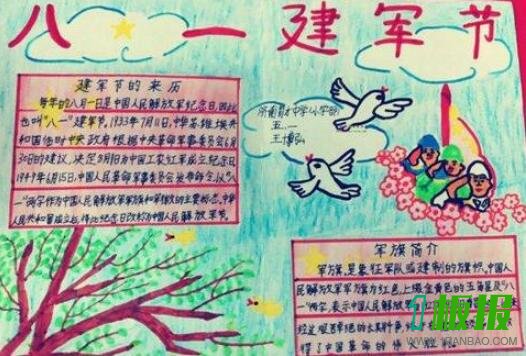 八一建军节
建军节的来历
每年的八月一日是中国人民解放军纪念日,因此
也叫"八一"建军节。1933年7月11日,中华苏维埃共
和国临时中央政府根据中央革命军事委员会6月
30日的建议,决定8月1日为中国工农红军成立纪念日
1949年6月15日,中国人民革命军事委员会发布命令,以"八
一"两字作为中国人民解放军军旗和军徽的主要标志。中华
人民共和国成立后,将此纪念日改称为中国人民解放军建军节。
五.一
军旗简介
军旗,是象征军队或建制的旗帜。中国人
民解放军军旗为红色,上缀金黄色的五角星及"八
一"两字,表示中国人民解放
板报
WWW.1BANBAO.COM